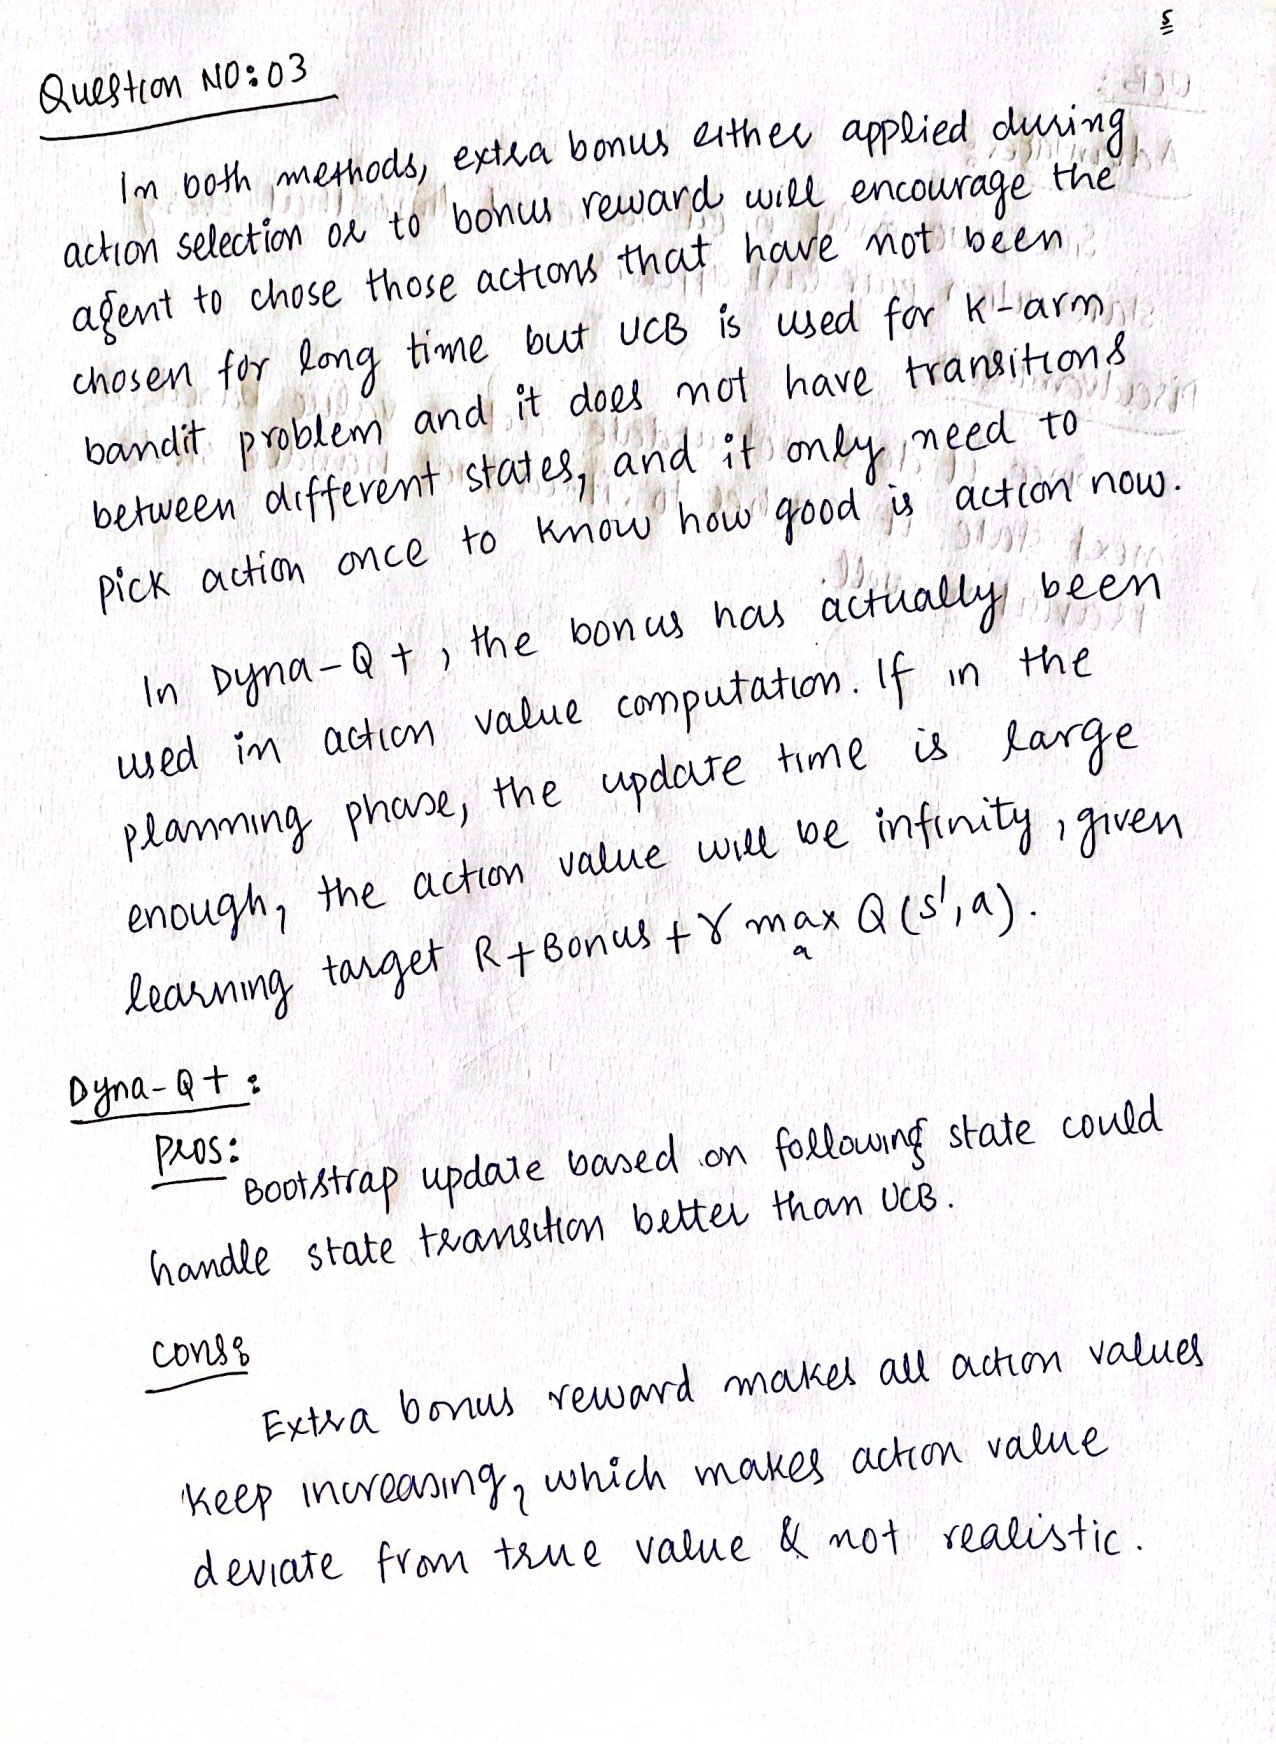 5
Question NO: 03
In both methods, extra bonus either applied during
action selection or to bonus reward will encourage the
agent to chose those actions that have not been
chosen for long time but UCB is used for K-arm
bandit problem and it does not have transitions
between different states, and it only need to
pick action once to know how good is action now.
In Dyna-Q+, the bonus has actually been
used in action value computation. If in the
planning phase, the update time is large
enough, the action value will be infinity, given
learning target R + Bonus + γ max Q (s', a).
a
Dyna-Q+ :
Pros:
Bootstrap update based on following state could
handle state transition better than UCB.
Cons:
Extra bonus reward makes all action values
keep increasing, which makes action value
deviate from true value & not realistic.